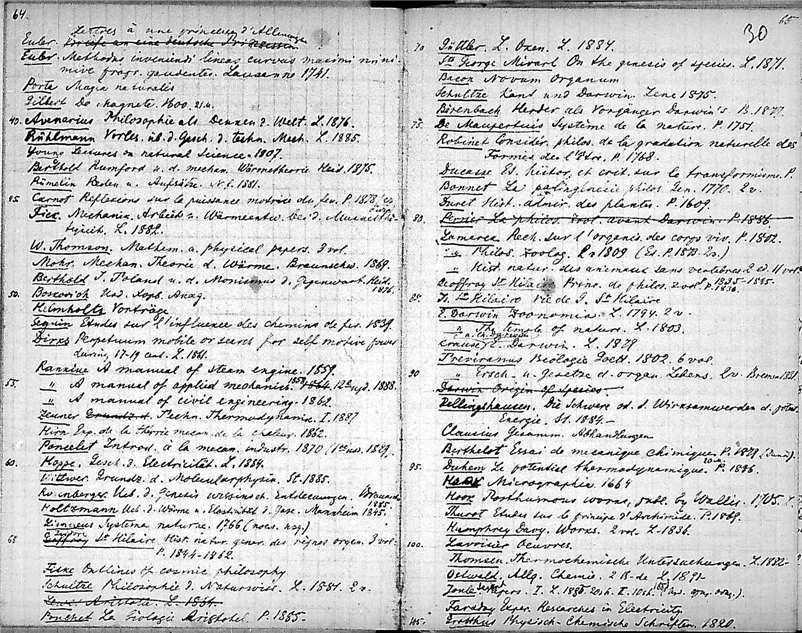 64.
Lettres à une princesse d'Allemagne
Euler.
Euler. Methodus inveniendi lineas curvas maximi mini-
mive propr. gaudentes. Lausanne 1741.
Porta Magia naturalis
Gilbert De magnete. 1600.
40. Avenarius Philosophie als Denken d. Welt. L. 1876.
Rühlmann Vorles. üb. d. Gesch. d. techn. Mech. L. 1885.
Young Lectures on natural Science. 1807.
Berthold Rumford u. d. mechan. Wärmetheorie Heid. 1875.
Rümelin Reden u. Aufsätze. N. F. 1881.
45. Carnot Reflexions sur la puissance motrice du feu. P. 1878
Fick. Mechanic. Arbeit u. Wärmeentw. bei d. Muskelthä-
tigkeit. L. 1882.
W. Thomson. Mathem. a. physical papers. 3 vol.
Mohr. Mechan. Theorie d. Wärme. Braunschw. 1869.
Berthold J. Toland u. d. Monismus d. Gegenwart. Heid. 1876.
50. Boscovich
Helmholtz Vorträge
Seguin Etudes sur l'influence des chemins de fer. 1839.
Dirks Perpetuum mobile or search for self motive power
during 17-19 cent. L. 1861.
Rankine A manual of steam engine. 1859.
55. " A manual of applied mechanics. 1858 12th ed. 1888.
" A manual of civil engineering. 1862.
Zeuner Techn. Thermodynamic. I. 1887
Hirn Exp. de la théorie mecan. de la chaleur. 1862.
Poncelet Introd. à la mecan. industr. 1870 (1re 1829.
60. Hoppe. Gesch. d. Electricität. L. 1884.
Wittwer Grundz. d. Molecularphysik. St. 1885.
Ueb. d. Genesis wissensch. Entdeckungen.
Holtzmann Ueb. d. Wärme u. Elasticität d. Gase. Mannheim 1845.
Linnaeus Systema naturae. 1766
65 Geoffroy St Hilaire Hist. natur. gener. des règnes organ. 3 vol.
P. 1854-1862.
Fiske Outlines of cosmic philosophy
Schultze Philosophie d. Naturwiss. L. 1881. 2 v.
Lewes Aristotle. L. 1864.
Pouchet La Biologie Aristotel. P. 1885.
65
30
70 Güttler. L. Oken. L. 1884.
St George Mivart On the genesis of species. L. 1871.
Bacon Novum Organum
Schultze Kant und Darwin. Jena 1875.
Bärenbach Herder als Vorgänger Darwin's B. 1877.
75. De Maupertuis Système de la nature. P. 1751.
Robinet Considér. philos. de la gradation naturelle des
Formes de l'Etre. P. 1768.
Ducasse Et. histor. et crit. sur le transformisme. P.
Bonnet La palingénésie philos. Gen. 1770. 2 v.
Duret Hist. admir. des plantes. P. 1609.
80. Perrier La philos. zool. avant Darwin. P. 1886
Lamarck Rech. sur l'organis. des corps viv. P. 1802.
" Philos. zoolog. P. 1809 (Ed. P. 1873 2 v.)
" Hist. natur. des animaux sans vertèbres 2 ed. 11 vol. 1835-1845.
Geoffroy St Hilaire Princ. de philos. zool. P. 1830.
85. Is. St Hilaire Vie de G. St Hilaire
E. Darwin Zoonomia. L. 1794. 2 v.
" The temple of nature. L. 1803.
Krause E. Darwin. L. 1879
Treviranus Biologie Goett. 1802. 6 vol.
90 " Ersch. u. Gesetze d. organ. Lebens. 2 v. Bremen 1831.
Darwin Origin of Species
Zellingshausen. Die Schwere od. d. Wirksamwerden d. poten.
Energie. St. 1884.
Clausius Gesamm. Abhandlungen
Berthelot Essai de mecanique chimique. P. 1879
95. Duhem Le potentiel thermodynamique. P. 1886.
Hook Micrographia 1664
Hook Posthumous works, publ. by Waller. 1705. L.
Thurot Etudes sur le principe d'Archimède. P. 1869.
Humphrey Davy. Works. 2 vol. L. 1836.
100. Lavoisier Oeuvres.
Thomsen. Thermochemische Untersuchungen. L. 1882-
Ostwald. Allg. Chemie. 2 B-de L. 1891-
Joule Scient. Papers. I. L. 1885
Faraday Exper. Researches in Electricity
105. Grotthus Physisch-Chemische Schriften. 1820.